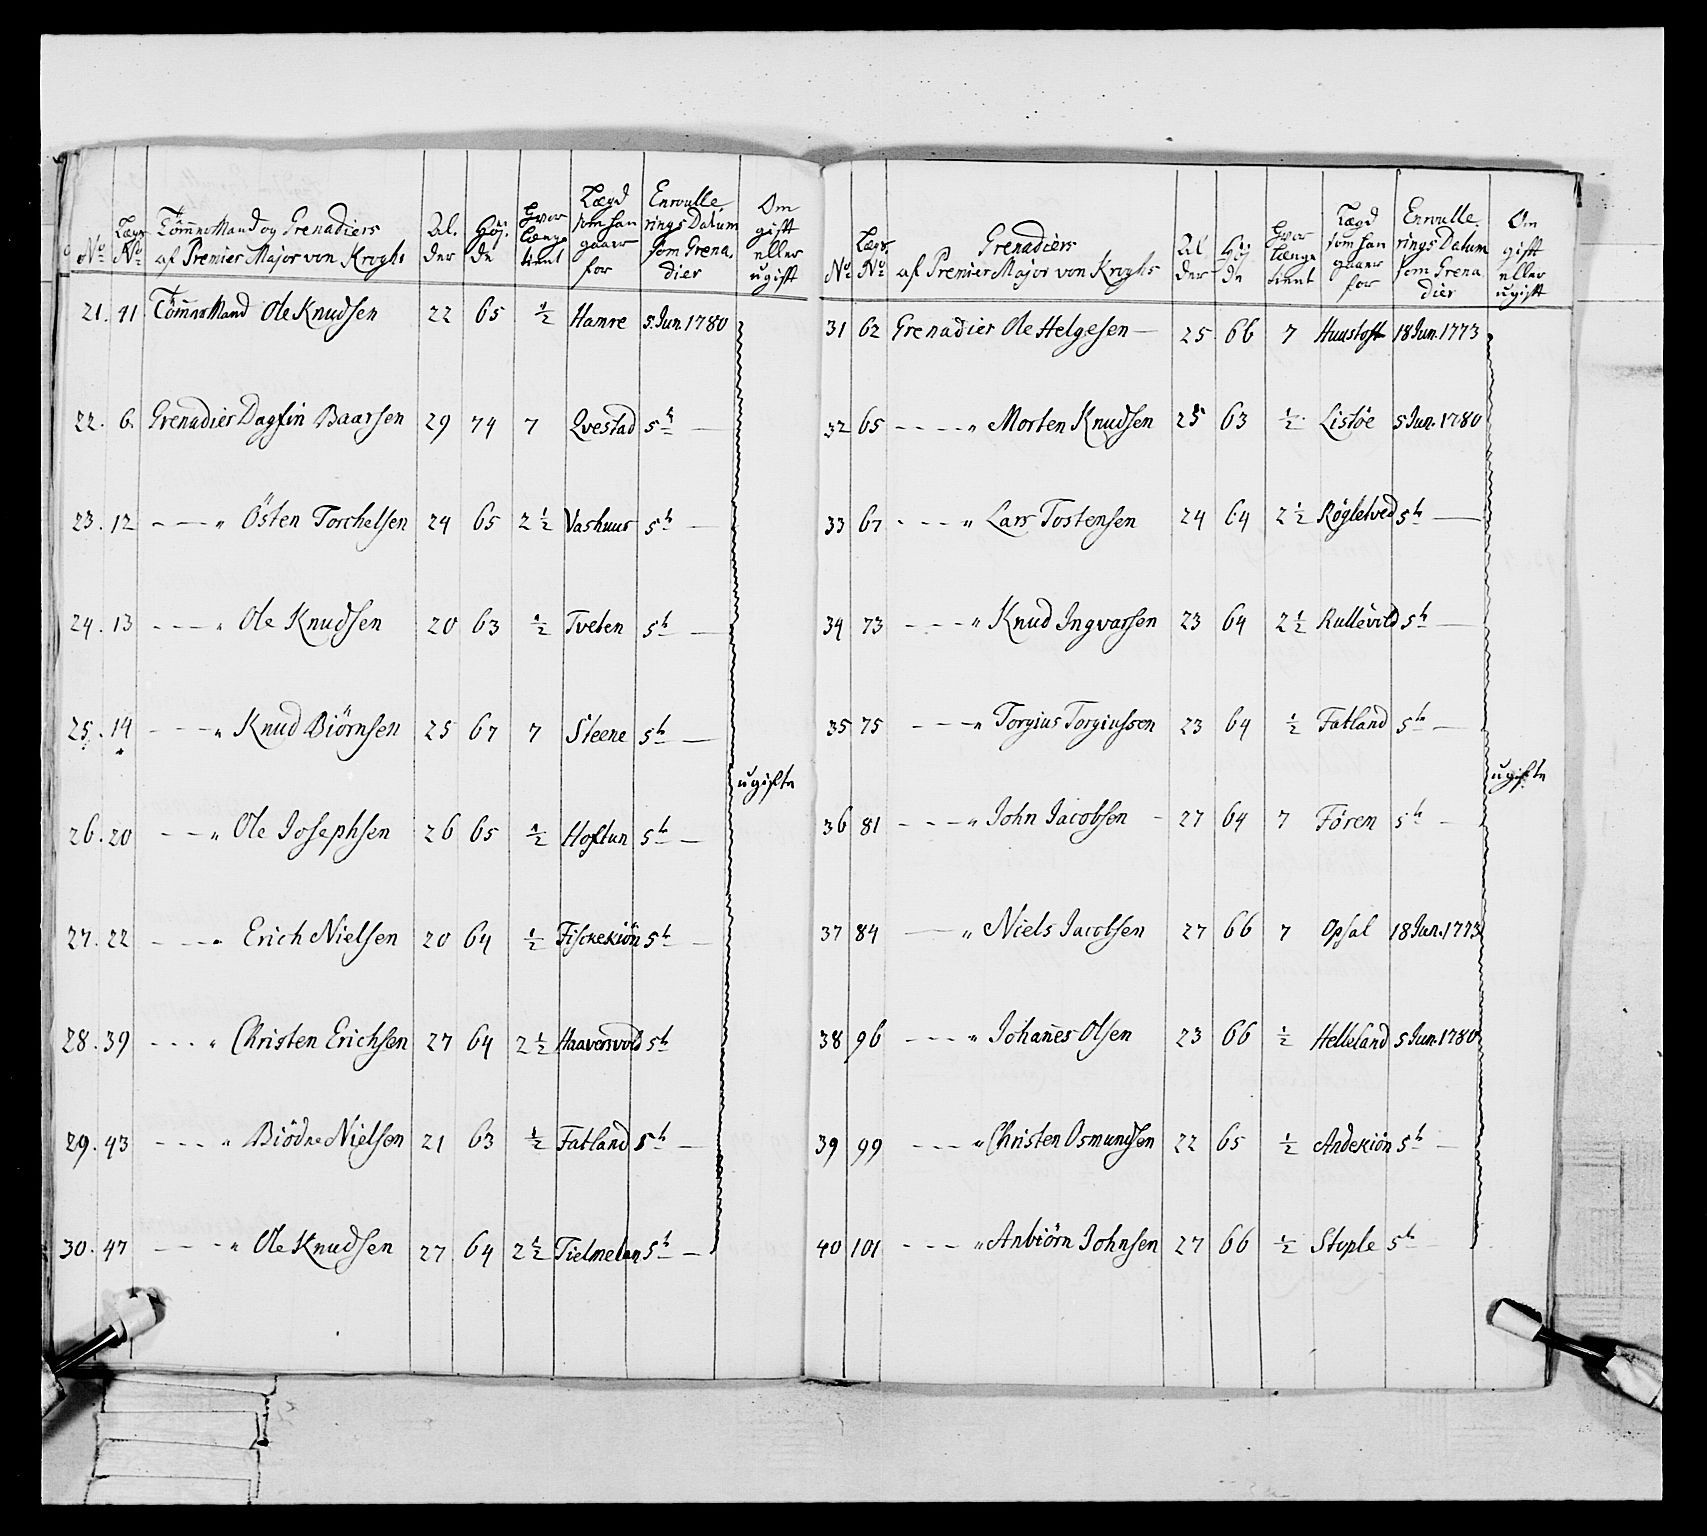 No
Lægs No
Tømmermand og Grenadiers
af Premier Major von Kroghs
Al. der
Høj. de
Hvor længe tient
Lægd som han gaaer for
Enroulle rings Datum som Grena. dier
Om gift eller ugift
21. 41 Tømmermand Ole Knudsen 22 65 ½ Hamre 5. Jun. 1780
22. 6. Grenadier Dagfin Baarsen 29 74 7 Qvestad 5te —
23. 12 - - - „ Östen Torchelsen 24 65 2½ Vashuus 5te —
24. 13 - - - „ Ole Knudsen 20 63 ½ Tveten 5te —
25. 14 - - - „ Knud Biörnsen 25 67 7 Steene 5te —
ugifte
26. 20 - - - „ Ole Josephsen 26 65 ½ Hoftun 5te —
27. 22 - - - „ Erich Nielsen 20 64 ½ Fisckekiön 5te —
28. 39 - - - „ Christen Erichsen 27 64 2½ Haavorsvold 5te
29. 43 - - - „ Biödne Nielsen 21 63 ½ Fatland 5te —
30. 47 - - - „ Ole Knudsen 27 64 2½ Tielmeland 5te —
No
Lægs No
Grenadiers
af Premier Major von Kroghs
Al der
Høj de
Hvor længe tient
Lægd som han gaaer for
Enroulle. rings Datum som Grena dier
Om gift eller ugift
31 62 Grenadier Ole Helgesen — 25 66 7 18 Jun. 1773
32 65 - - - - „ Morten Knudsen 25 63 ½ Listöe 5 Jun. 1780
33 67 - - - „ Lars Tostensen 24 64 2½ Rögletved 5te —
34 73 - - - „ Knud Ingvarsen 23 64 2½ Rullevild 5te —
35 75 - - - „ Torgius Torgiussen 23 64 ½ Fatland 5te —
ugifte
36 81 - - - „ John Jacobsen - 27 64 7 Fören 5te —
37 84 — „ Niels Jacobsen 27 66 7 Opsal 18 Jun. 1773
38 96 - - - „ Johanes Olsen 23 66 ½ Helleland 5 Jun. 1780
39 99 - - - „ Christen Osmundsen 22 65 ½ Andekiön 5te —
40 101 - - - „ Anbiörn Johnsen 27 66 ½ Stople 5te